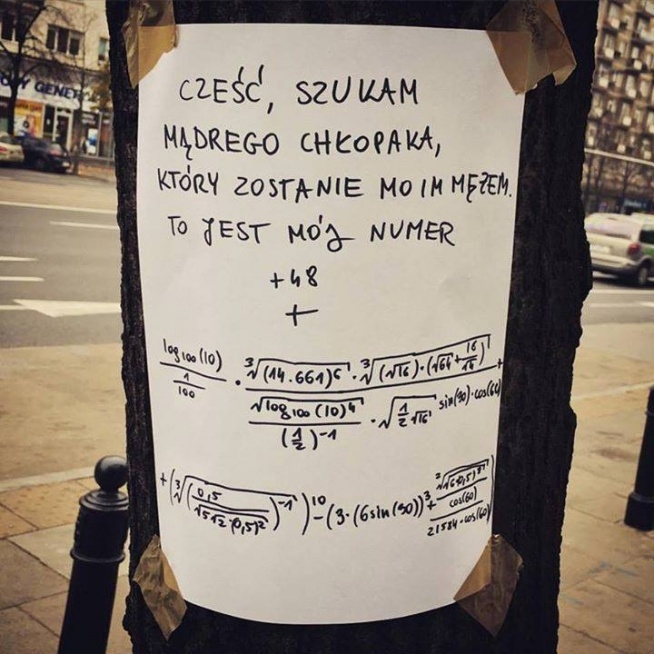 CZEŚĆ, SZUKAM
MĄDREGO CHŁOPAKA,
KTÓRY ZOSTANIE MOIM MĘŻEM.
TO JEST MÓJ NUMER
+48
+
log100(10) / (1/100) · ∛(14.661)⁶ · ∛(√16)·(√64+16/14) / (√log100(10)⁴ / (1/2)⁻¹ · √(1/2 √16) sin(90)·cos(60)) +
+(∛((0,5 / √512·(0,5)²)⁻¹))¹⁰ - (3·(6sin(90))³ +
cos(60)
21584·cos(60)